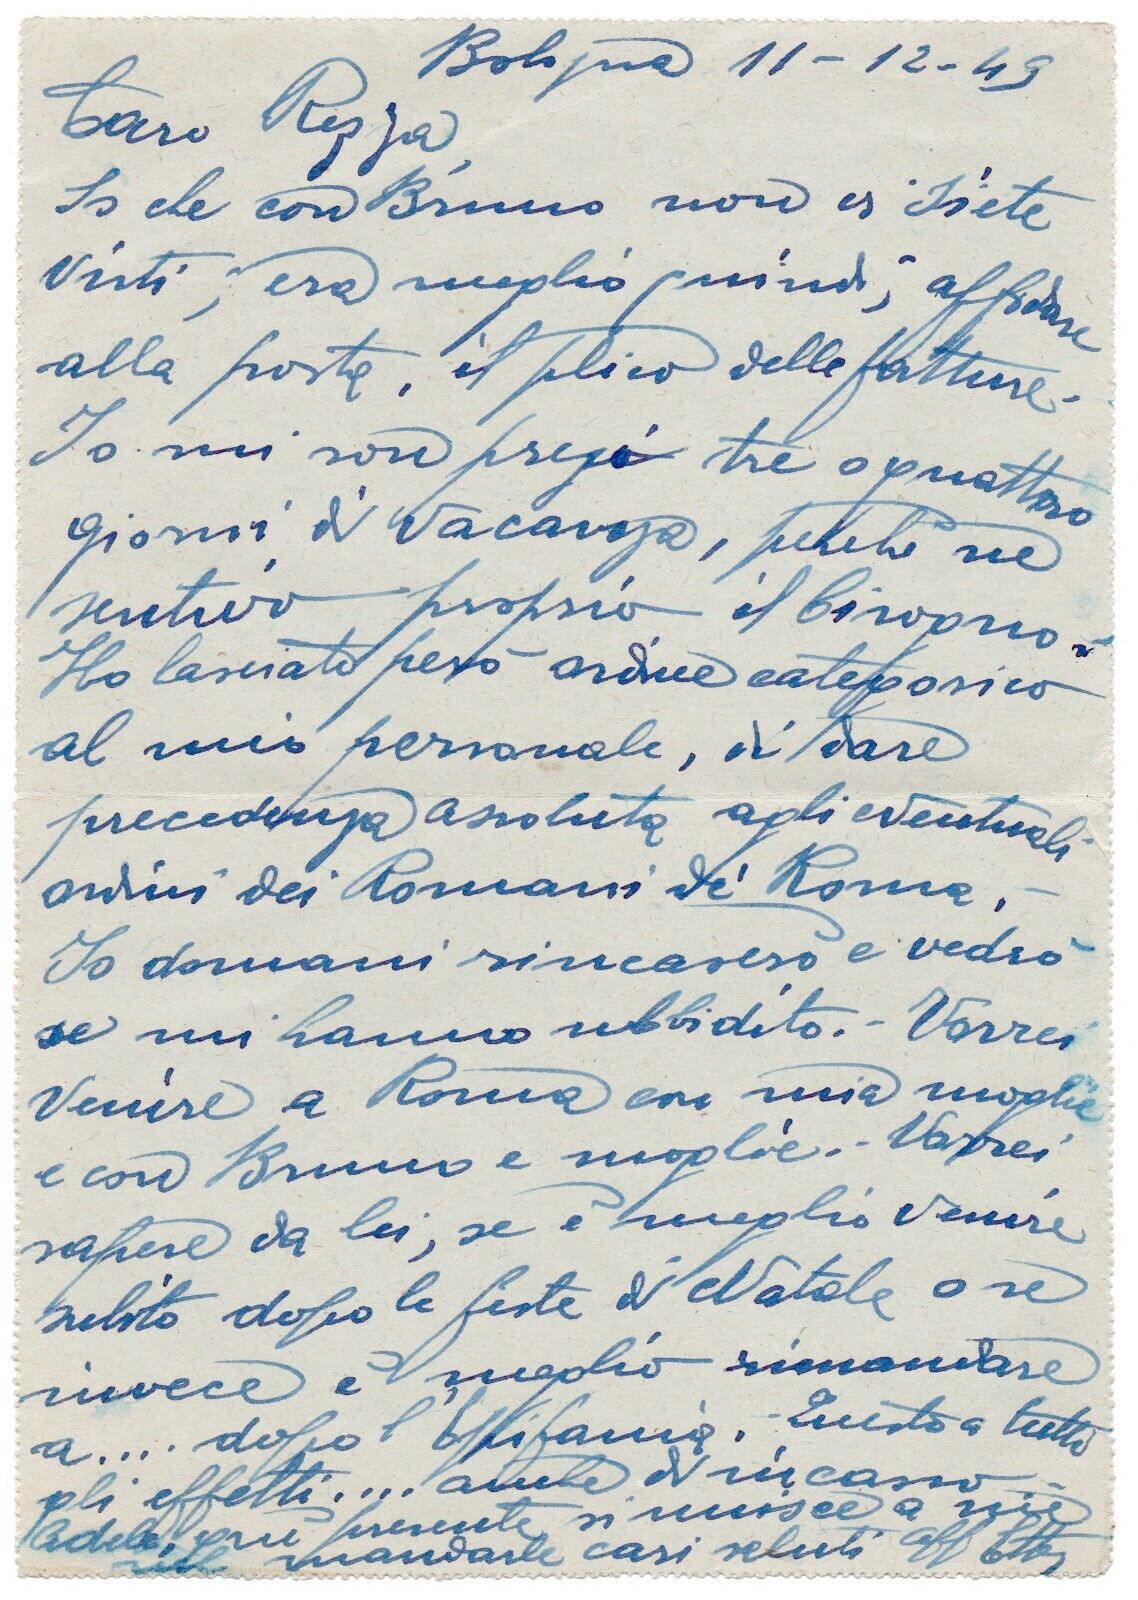 Bologna 11-12-49
Caro Rezza,
So che con Bruno non vi siete
visti; era meglio quindi, affidare
alla posta, il plico delle fatture.-
Io mi son preso tre o quattro
giorni di vacanza, perché ne
sentivo proprio il bisogno.
Ho lasciato però ordine categorico
al mio personale, di dare
precedenza assoluta agli eventuali
ordini dei Romani de' Roma.-
Io domani rincaserò e vedrò
se mi hanno ubbidito.- Vorrei
venire a Roma con mia moglie
e con Bruno e moglie.- Vorrei
sapere da lei, se è meglio venire
subito dopo le feste di Natale o se
invece è meglio rimandare
a.... dopo l'Epifania.- Questo a tutti
gli effetti.... anche di incasso.-
Adele, qui presente, si unisce a me
mandarle cari saluti aff